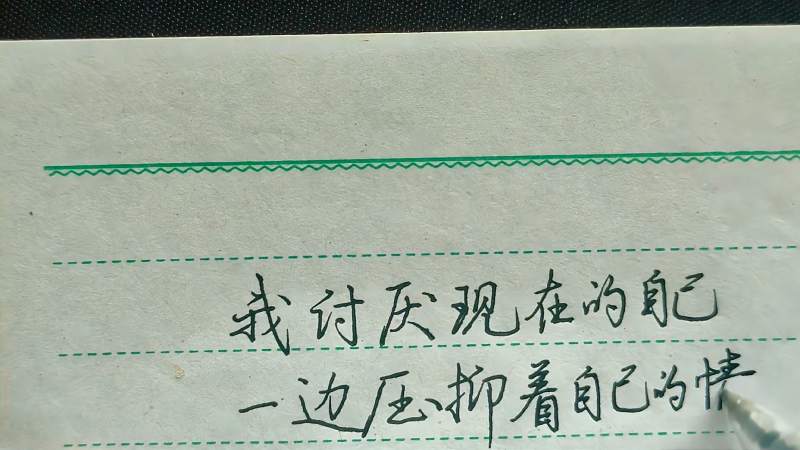 我讨厌现在的自己
一边压抑着自己的情